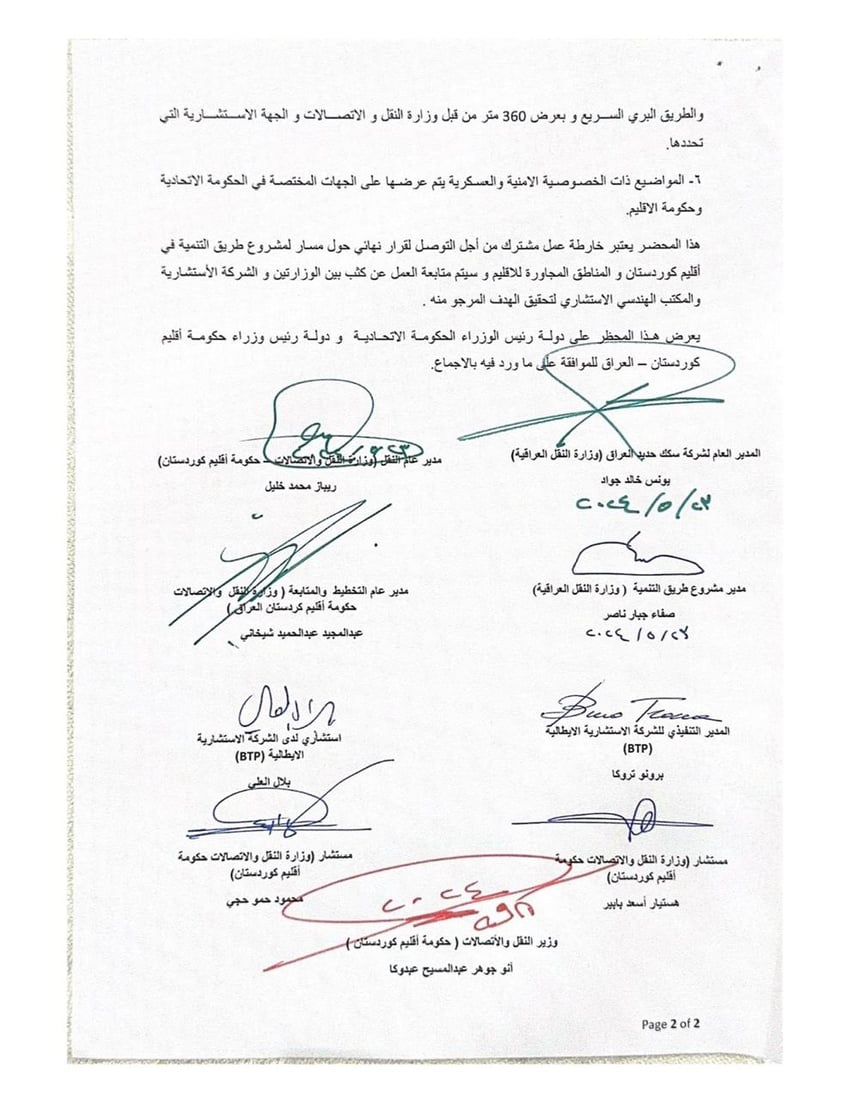 والطريق البري السريع و بعرض 360 متر من قبل وزارة النقل و الاتصالات و الجهة الاستشارية التي
تحددها.
٦- المواضيع ذات الخصوصية الامنية والعسكرية يتم عرضها على الجهات المختصة في الحكومة الاتحادية
وحكومة الاقليم.
هذا المحضر يعتبر خارطة عمل مشترك من أجل التوصل لقرار نهائي حول مسار لمشروع طريق التنمية في
أقليم كوردستان و المناطق المجاورة للاقليم و سيتم متابعة العمل عن كثب بين الوزارتين و الشركة الأستشارية
والمكتب الهندسي الاستشاري لتحقيق الهدف المرجو منه .
يعرض هذا المحظر على دولة رئيس الوزراء الحكومة الاتحادية و دولة رئيس وزراء حكومة أقليم
كوردستان – العراق للموافقة على ما ورد فيه بالاجماع.
المدير العام لشركة سكك حديد العراق (وزارة النقل العراقية)
يونس خالد جواد
٢٠٢٤/٥/٢٣
مدير عام النقل (وزارة النقل والاتصالات – حكومة أقليم كوردستان)
ريباز محمد خليل
مدير مشروع طريق التنمية ( وزارة النقل العراقية)
صفاء جبار ناصر
٢٠٢٤/٥/٢٣
مدير عام التخطيط والمتابعة ( وزارة النقل والاتصالات
حكومة أقليم كردستان العراق )
عبدالمجيد عبدالحميد شيخاني
المدير التنفيذي للشركة الاستشارية الايطالية
(BTP)
برونو تروكا
استشاري لدى الشركة الاستشارية
الايطالية (BTP)
بلال العلي
مستشار (وزارة النقل والاتصالات حكومة
أقليم كوردستان)
هستيار أسعد بابير
مستشار (وزارة النقل والاتصالات حكومة
أقليم كوردستان)
محمود حمو حجي
وزير النقل والأتصالات ( حكومة أقليم كوردستان )
أنو جوهر عبدالمسيح عبدوكا
Page 2 of 2